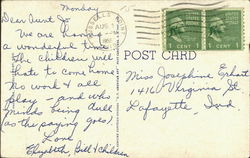 Monday
Dear Aunt Jo
We are having
a wonderful time
The children will
hate to come home
No work & all
play - and who
minds being dull
(as the saying goes)
Love
Elizabeth Bill & children
AUG
1 CENT 1
1 CENT 1
POST CARD
Miss Josephine
1416 Virginia St
Lafayette Ind